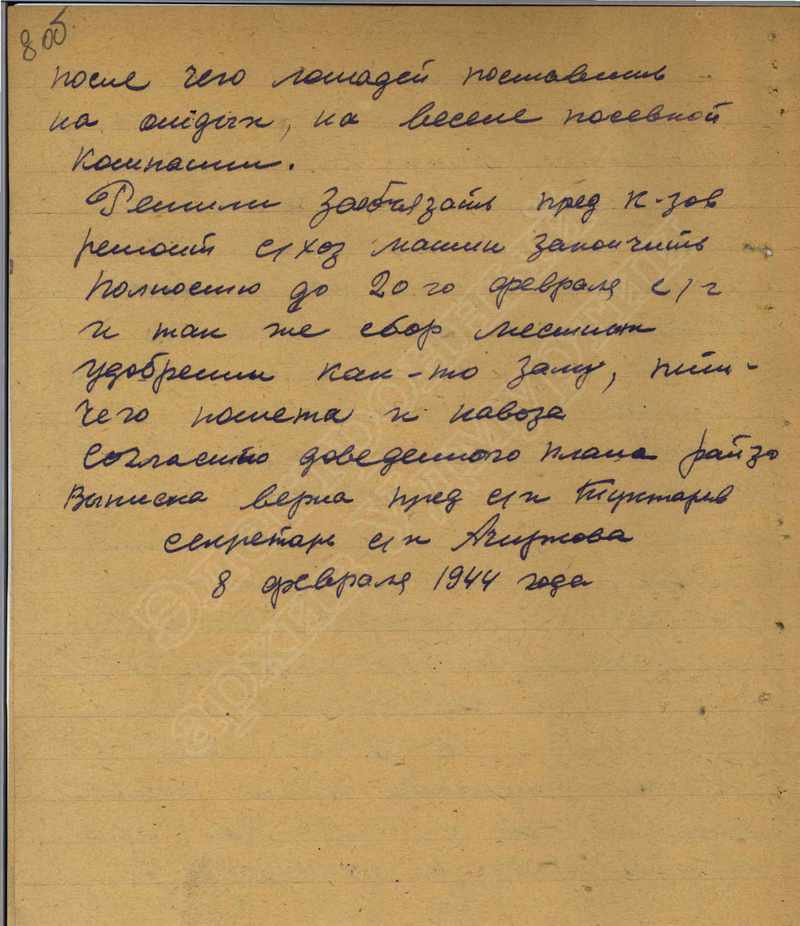 8 об.
после чего лошадей поставить
на отдых, на весене посевной
Компании.
Решили заобязать пред к-зов
ремонт с/хоз машин закончить
полностю до 20 го февраля с/г
и так же сбор местных
удобрении как-то залу, птич-
чего помета и навоза
согласно доведенного плана райзо
Выписка верна пред с/к Туктарев
секретарь с/к
8 февраля 1944 года